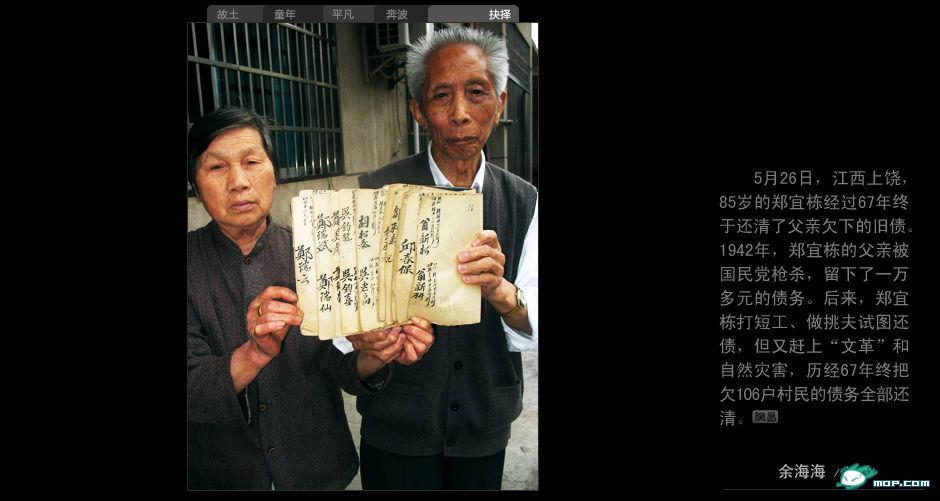 故土
童年
平凡
奔波
抉择
5月26日，江西上饶，
85岁的郑宜栋经过67年终
于还清了父亲欠下的旧债。
1942年，郑宜栋的父亲被
国民党枪杀，留下了一万
多元的债务。后来，郑宜
栋打短工、做挑夫试图还
债，但又赶上“文革”和
自然灾害，历经67年终把
欠106户村民的债务全部还
清。網易
余海海
mop.com
鄭瑞云
鄭瑞斌
鄭瑞仙
吳钧喜
胡松泰
邱春保
翁新松